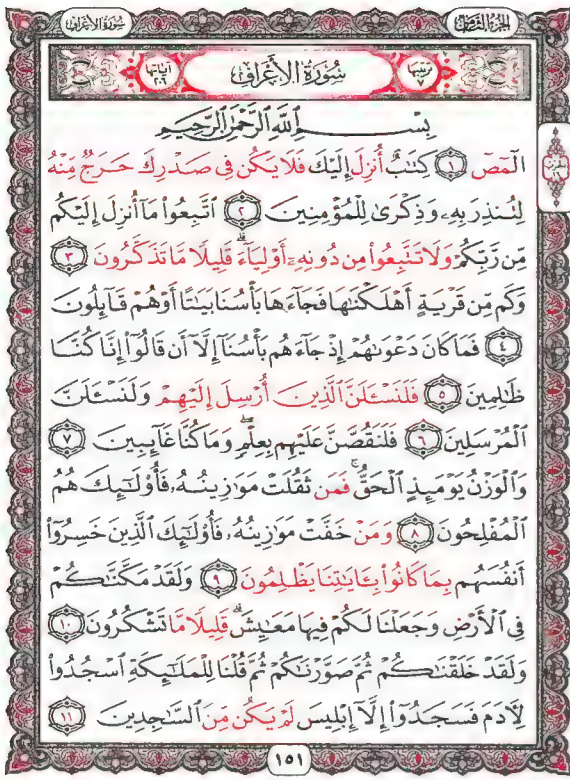 الجزء الثامن
سورة الأعراف
ترتيبها
٧
سُورَةُ الأَعْرَافِ
آياتها
٢٠٦
بِسْمِ ٱللَّهِ ٱلرَّحْمَٰنِ ٱلرَّحِيمِ
الٓمٓصٓ ١ كِتَٰبٌ أُنزِلَ إِلَيْكَ فَلَا يَكُن فِى صَدْرِكَ حَرَجٌ مِّنْهُ
لِتُنذِرَ بِهِۦ وَذِكْرَىٰ لِلْمُؤْمِنِينَ ٢ ٱتَّبِعُوا۟ مَآ أُنزِلَ إِلَيْكُم
مِّن رَّبِّكُمْ وَلَا تَتَّبِعُوا۟ مِن دُونِهِۦٓ أَوْلِيَآءَ ۗ قَلِيلًا مَّا تَذَكَّرُونَ ٣
وَكَم مِّن قَرْيَةٍ أَهْلَكْنَٰهَا فَجَآءَهَا بَأْسُنَا بَيَٰتًا أَوْ هُمْ قَآئِلُونَ
٤ فَمَا كَانَ دَعْوَىٰهُمْ إِذْ جَآءَهُم بَأْسُنَآ إِلَّآ أَن قَالُوٓا۟ إِنَّا كُنَّا
ظَٰلِمِينَ ٥ فَلَنَسْـَٔلَنَّ ٱلَّذِينَ أُرْسِلَ إِلَيْهِمْ وَلَنَسْـَٔلَنَّ
ٱلْمُرْسَلِينَ ٦ فَلَنَقُصَّنَّ عَلَيْهِم بِعِلْمٍ ۖ وَمَا كُنَّا غَآئِبِينَ ٧
وَٱلْوَزْنُ يَوْمَئِذٍ ٱلْحَقُّ ۚ فَمَن ثَقُلَتْ مَوَٰزِينُهُۥ فَأُو۟لَٰٓئِكَ هُمُ
ٱلْمُفْلِحُونَ ٨ وَمَنْ خَفَّتْ مَوَٰزِينُهُۥ فَأُو۟لَٰٓئِكَ ٱلَّذِينَ خَسِرُوٓا۟
أَنفُسَهُم بِمَا كَانُوا۟ بِـَٔايَٰتِنَا يَظْلِمُونَ ٩ وَلَقَدْ مَكَّنَّٰكُمْ
فِى ٱلْأَرْضِ وَجَعَلْنَا لَكُمْ فِيهَا مَعَٰيِشَ ۗ قَلِيلًا مَّا تَشْكُرُونَ ١٠
وَلَقَدْ خَلَقْنَٰكُمْ ثُمَّ صَوَّرْنَٰكُمْ ثُمَّ قُلْنَا لِلْمَلَٰٓئِكَةِ ٱسْجُدُوا۟
لِـَٔادَمَ فَسَجَدُوٓا۟ إِلَّآ إِبْلِيسَ لَمْ يَكُن مِّنَ ٱلسَّٰجِدِينَ ١١
١٥١